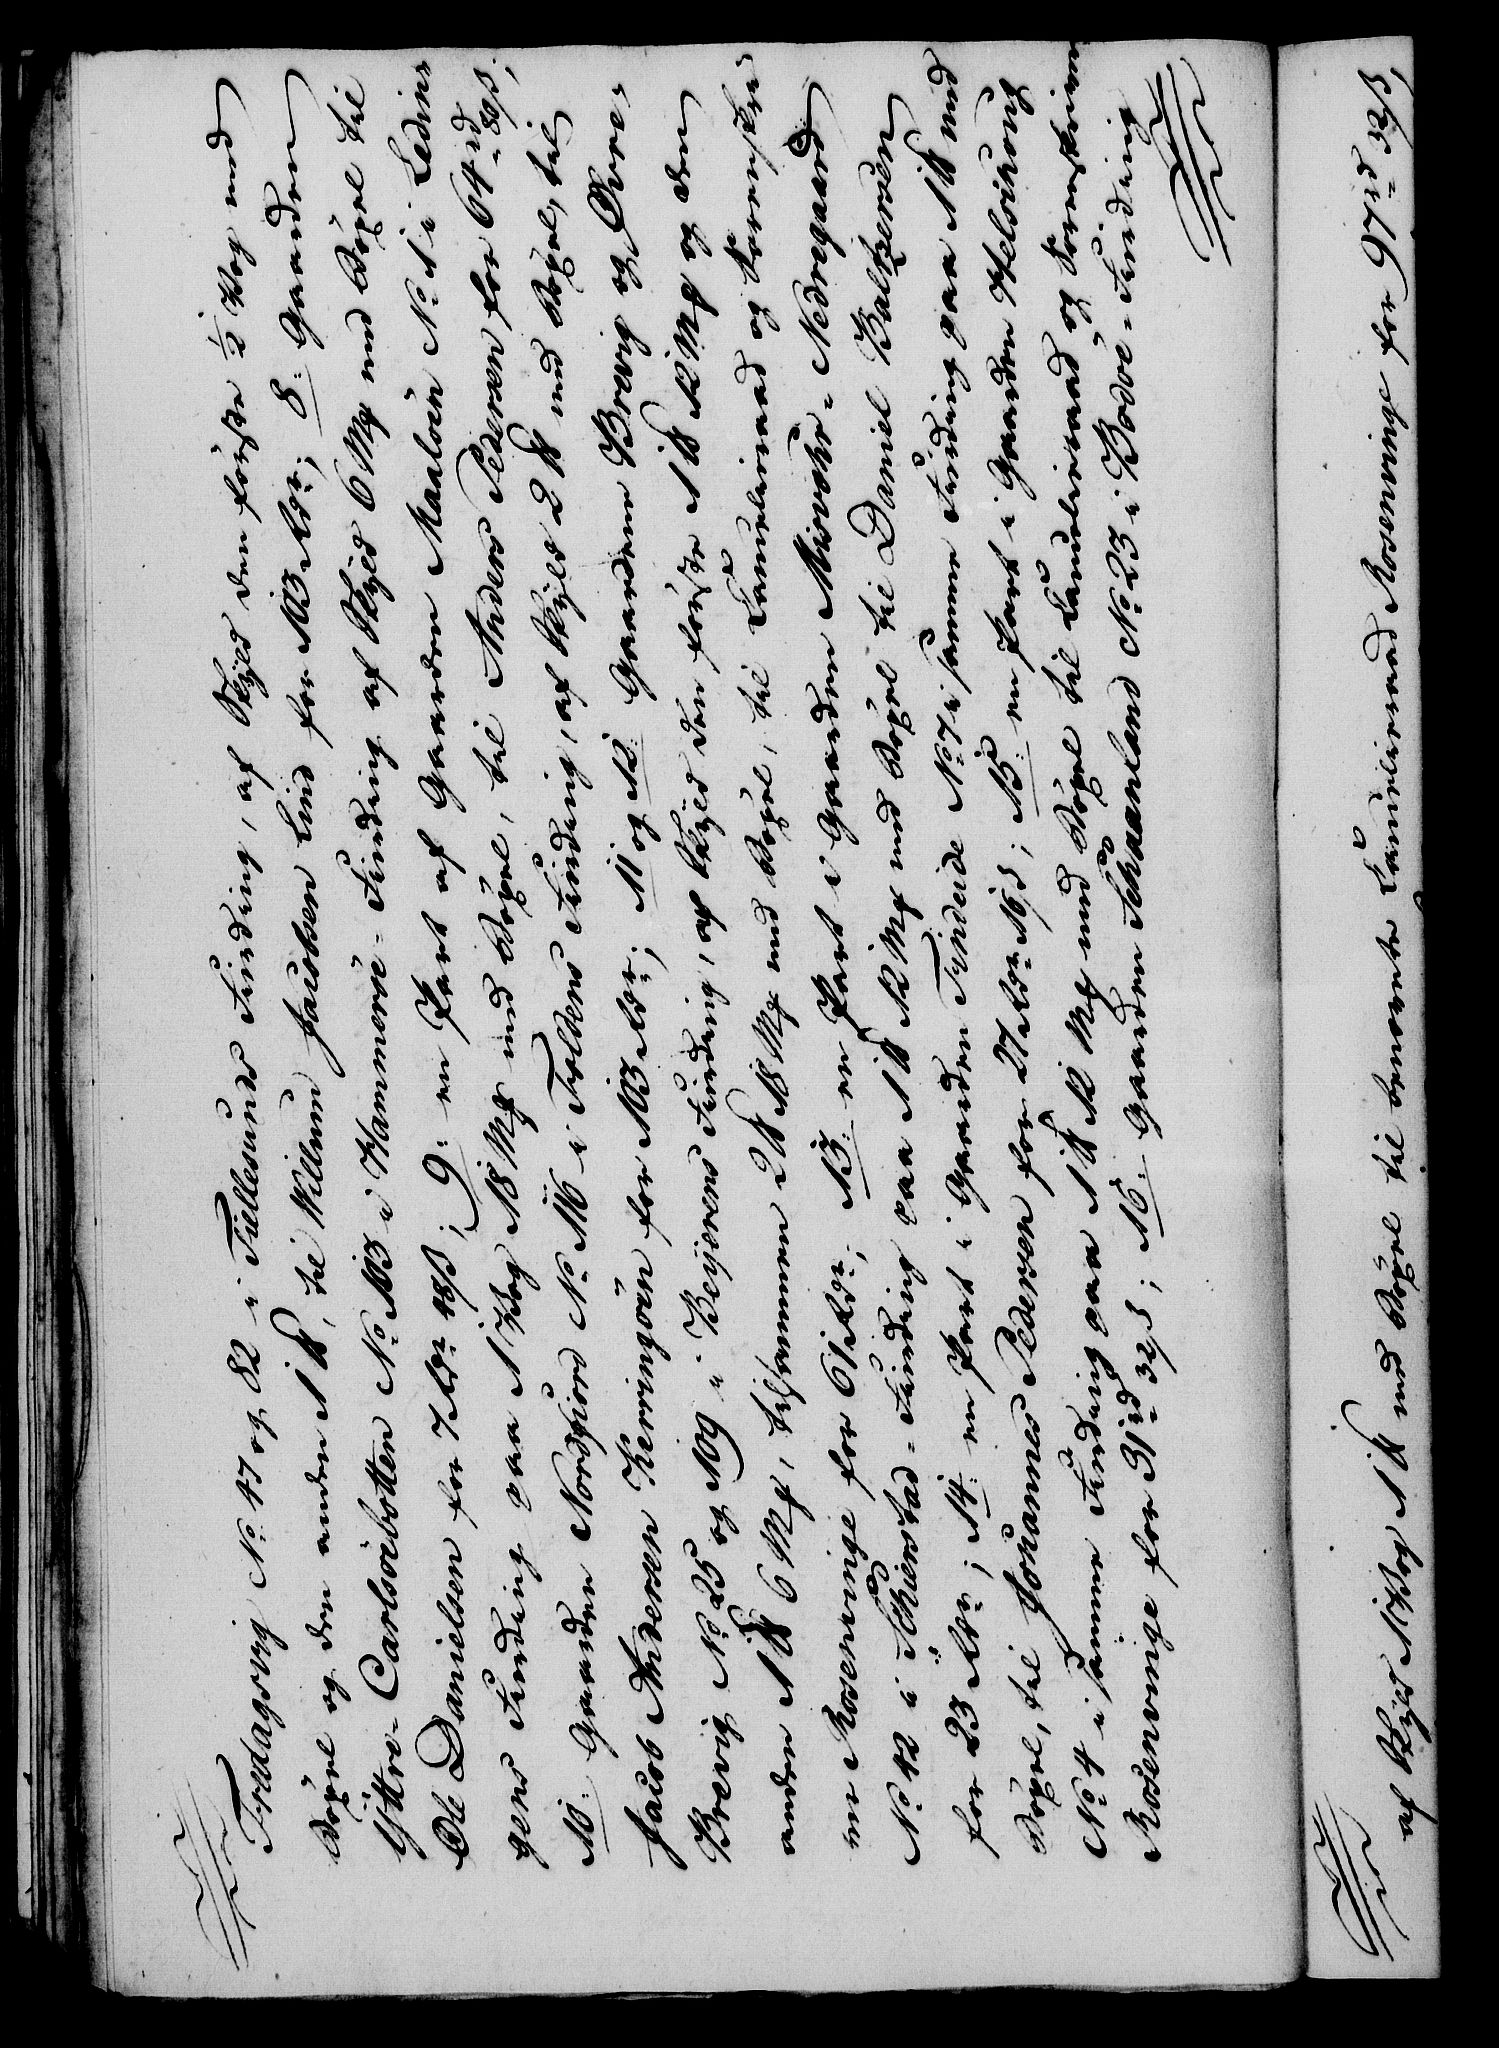 Fredagsvig No. 47 og 82 i Fuellesunds Finding, af Skyld den første ½ Vog med
Böxel og den anden 1 ℔, til Willum Jacobsen Lund for 113 Rdr; 8: Gaarden
Yttre-Carlsöebotten No. 103 i Hammeröe-Finding af Skyld 6 Mk med Böxel til
Ole Danielsen for 7 Rdr 48 ß; 9: en Part af Gaarden Maalöen No. 1 i Ledin-
gens Finding paa 1 Vog 18 Mk med Böxel, til Anders Pedersen for 64 rd 80 ß;
10: Gaarden Nordfiord No. 116 i Foldens Finding, af Skyld 2 ℔ med Böxel, til
Jacob Andersen Kerringöen for 103 Rdr; 11 og 12: Gaardene Brevig og Övre-
Brevig No. 25 og 109 i Beyerens Finding, af Skyld den første 1 ℔ 12 Mk og den
anden 1 ℔ 6 Mk, tilsammen 2 ℔ 18 Mk med Böxel, til Laurlieraad og Sorenskri-
ver Rosenvinge for 61 Rdr; 13: en Part i Gaarden Misvahr-Nedregaard
No. 42 i Schierstad-Finding paa 1 ℔ 12 Mk med Böxel til Daniel Baltzersen
for 23 Rdr; 14: en Part i Gaarden Tyndeide No. 7 i samme Finding paa 1 ℔ med
Böxel, til Johannes Pedersen for 27 Rdr 16 ß; 15: en Part i Gaarden Helvihoug
No. 4 i samme Finding paa 1 ℔ 12 Mk med Böxel til Laurlieraad og Sorenskriver
Rosenvinge for 31 rd 32 ß; 16: Gaarden Schaanland No. 23 i Bodöe-Finding
af Skyld 1 Vog 1 ℔ med Böxel til benævnte Laurlieraad Rosenvinge for 97 rd 32 ß,